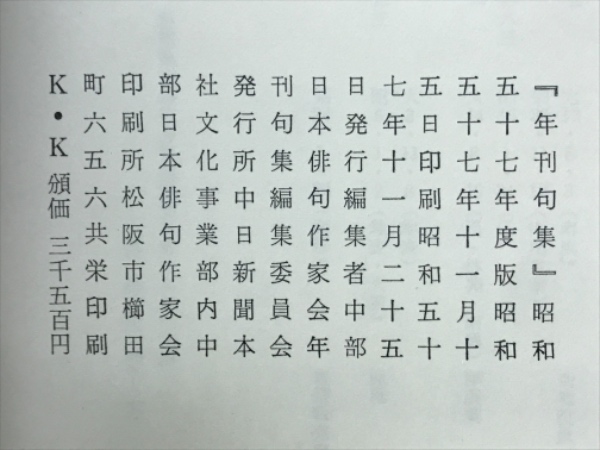 『年刊句集』昭和
五十七年度版昭和
五十七年十一月十
五日印刷昭和五十
七年十一月二十五
日発行編集者中部
日本俳句作家会年
刊句集編集委員会
発行所中日新聞本
社文化事業部内中
部日本俳句作家会
印刷所松阪市櫛田
町六五六共栄印刷
K・K 頒価 三千五百円